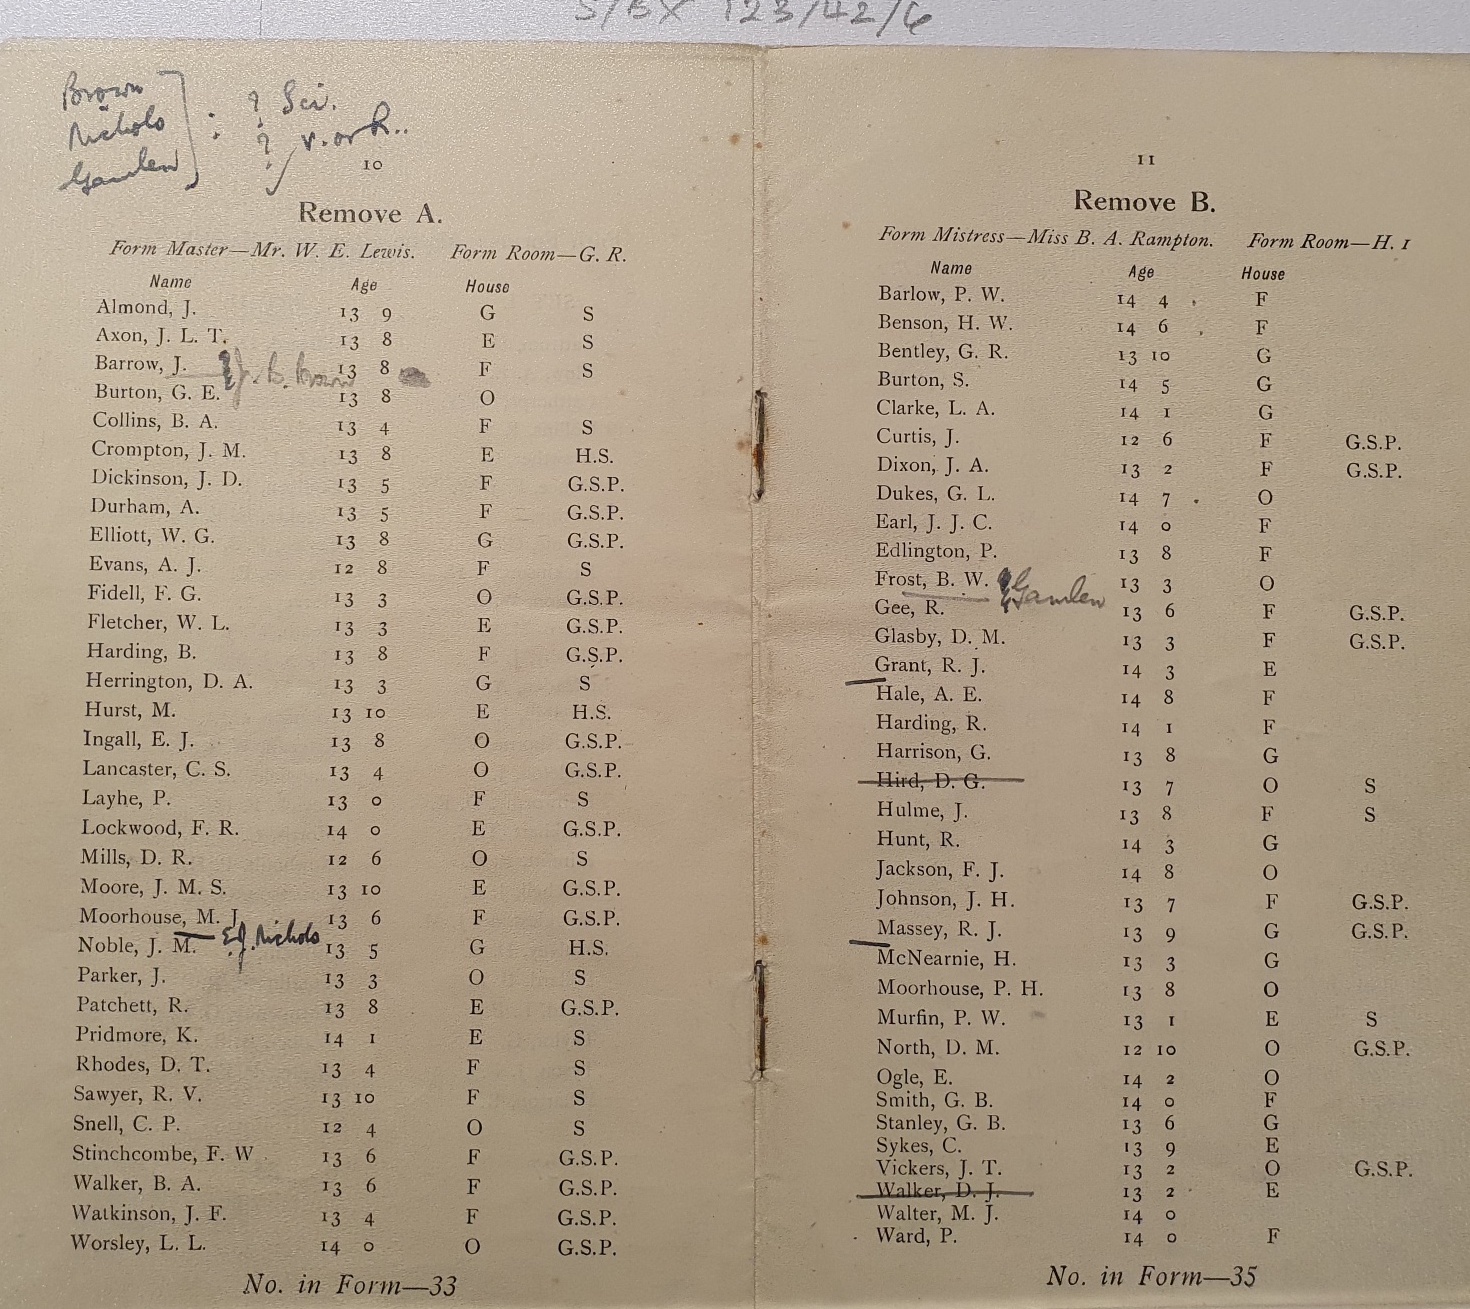 S/BX 123/42/6
Brown
Nichols
Gamlen
: ? Sci.
? V. or R..
10
Remove A.
Form Master—Mr. W. E. Lewis. Form Room—G. R.
Name Age House
Almond, J. 13 9 G S
Axon, J. L. T. 13 8 E S
Barrow, J. 13 8 F S
J. B. Brown
Burton, G. E. 13 8 O
Collins, B. A. 13 4 F S
Crompton, J. M. 13 8 E H.S.
Dickinson, J. D. 13 5 F G.S.P.
Durham, A. 13 5 F G.S.P.
Elliott, W. G. 13 8 G G.S.P.
Evans, A. J. 12 8 F S
Fidell, F. G. 13 3 O G.S.P.
Fletcher, W. L. 13 3 E G.S.P.
Harding, B. 13 8 F G.S.P.
Herrington, D. A. 13 3 G S
Hurst, M. 13 10 E H.S.
Ingall, E. J. 13 8 O G.S.P.
Lancaster, C. S. 13 4 O G.S.P.
Layhe, P. 13 0 F S
Lockwood, F. R. 14 0 E G.S.P.
Mills, D. R. 12 6 O S
Moore, J. M. S. 13 10 E G.S.P.
Moorhouse, M. J. 13 6 F G.S.P.
E.J. Nichols
Noble, J. M. 13 5 G H.S.
Parker, J. 13 3 O S
Patchett, R. 13 8 E G.S.P.
Pridmore, K. 14 1 E S
Rhodes, D. T. 13 4 F S
Sawyer, R. V. 13 10 F S
Snell, C. P. 12 4 O S
Stinchcombe, F. W 13 6 F G.S.P.
Walker, B. A. 13 6 F G.S.P.
Watkinson, J. F. 13 4 F G.S.P.
Worsley, L. L. 14 0 O G.S.P.
No. in Form—33
11
Remove B.
Form Mistress—Miss B. A. Rampton. Form Room—H. 1
Name Age House
Barlow, P. W. 14 4 F
Benson, H. W. 14 6 F
Bentley, G. R. 13 10 G
Burton, S. 14 5 G
Clarke, L. A. 14 1 G
Curtis, J. 12 6 F G.S.P.
Dixon, J. A. 13 2 F G.S.P.
Dukes, G. L. 14 7 O
Earl, J. J. C. 14 0 F
Edlington, P. 13 8 F
Frost, B. W. 13 3 O
Gamlen
Gee, R. 13 6 F G.S.P.
Glasby, D. M. 13 3 F G.S.P.
Grant, R. J. 14 3 E
Hale, A. E. 14 8 F
Harding, R. 14 1 F
Harrison, G. 13 8 G
Hird, D. G. 13 7 O S
Hulme, J. 13 8 F S
Hunt, R. 14 3 G
Jackson, F. J. 14 8 O
Johnson, J. H. 13 7 F G.S.P.
Massey, R. J. 13 9 G G.S.P.
McNearnie, H. 13 3 G
Moorhouse, P. H. 13 8 O
Murfin, P. W. 13 1 E S
North, D. M. 12 10 O G.S.P.
Ogle, E. 14 2 O
Smith, G. B. 14 0 F
Stanley, G. B. 13 6 G
Sykes, C. 13 9 E
Vickers, J. T. 13 2 O G.S.P.
Walker, D. J. 13 2 E
Walter, M. J. 14 0
Ward, P. 14 0 F
No. in Form—35